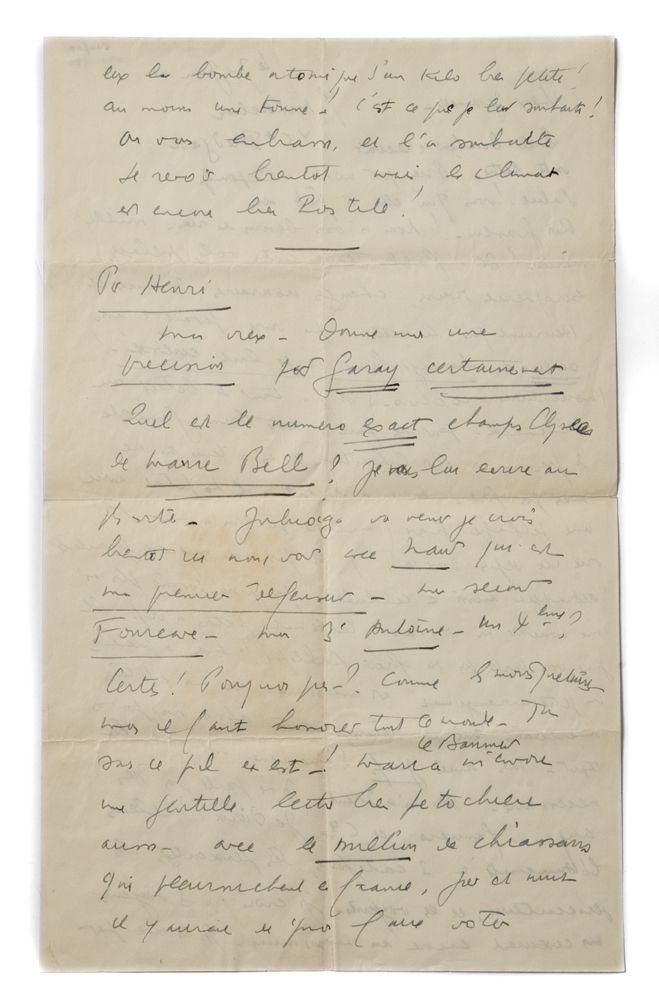 la bombe atomique d'un kilo bien petite!
au moins une tonne! C'est ce que je leur souhaite!
On vous embrasse, et l'on souhaite
se revoir bientôt mais le climat
est encore bien hostile!
Pr Henri
mon vieux - Donne moi une
précision pour Garay certainement
Quel est le numéro exact champs Elysées
de Marie Bell? je vais lui écrire au
plus vite - va venir je crois
bientôt ici nous voir avec Naud qui est
mon premier défenseur - mon second
Fourcade - mon 3e Antoine - un 4 ème?
Certes! Pourquoi pas -? Comme
mais il faut honorer tout le monde - Tu
sais ce qu'il en est -! le Bannier
Maria m'envoie
une gentille lettre bien petochiere
aussi - avec le million de chiassans
qui pleurnichent en France, jour et nuit
il y aurait de quoi faire voter